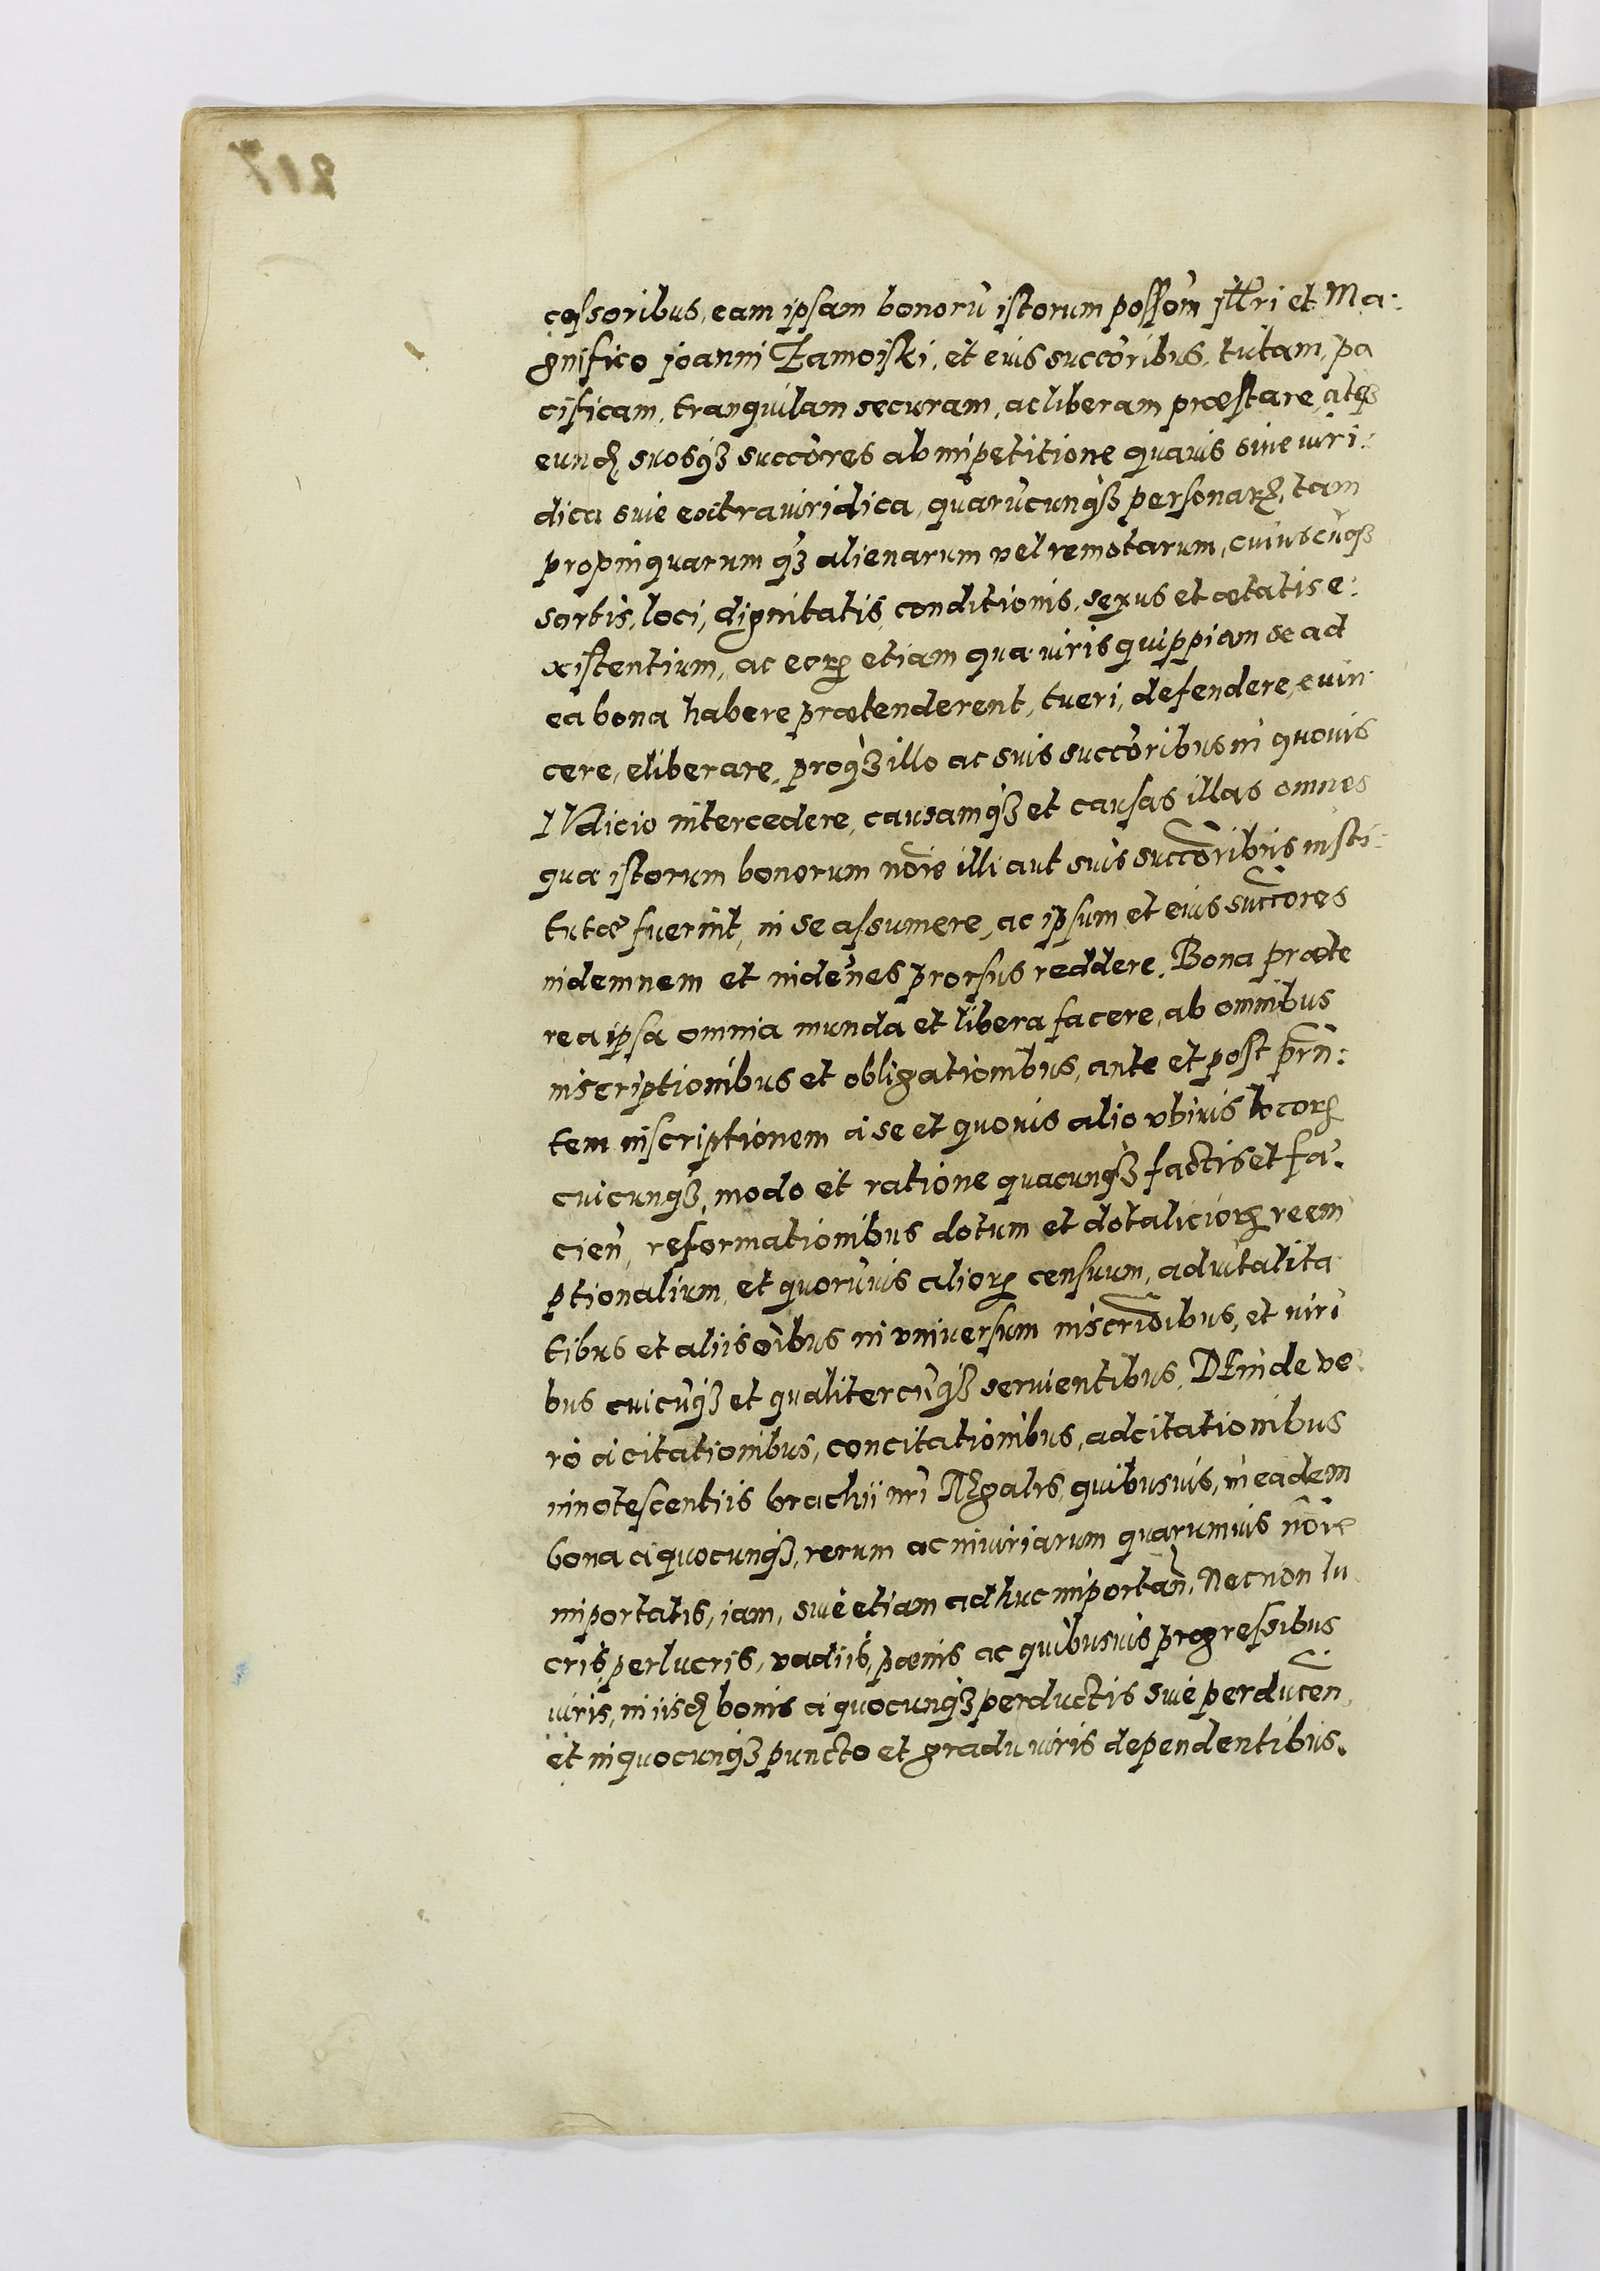 cessoribus, eam ipsam bonorū istorum possōm illri et Ma:
gnifico Joanni Zamoiski, et eius succōribus, tutam, pa
cificam, tranquilam securam, ac liberam præstare, atqȝ
eundē suosqȝ succōres ab impetitione quauis siue iuri:
dica siue extraiuridica, quarūcunqȝ personarꝝ, tam
propinquarum qȝ alienarum vel remotarum, cuiuscūqȝ
sortis, loci, dignitatis, conditionis, sexus et ætatis e:
xistentium, ac eorꝝ etiam qua iuris quippiam se ad
ea bona habere prætenderent, tueri, defendere, euin
cere, eliberare, proqȝ illo ac suis succōribus in quouis
IVdicio intercedere, causamqȝ et causas illas omnes
quæ istorum bonorum nōie illi aut suis succōribus insti:
tutæ fuerint, in se assumere, ac ipsum et eius succōres
indemnem et indēnes prorsus reddere. Bona præte
rea ipsa omnia munda et libera facere, ab omnibus
inscriptionibus et obligationibus, ante et post prn̄:
tem inscriptionem a se et quouis alio vbiuis locorꝝ
cuicunqȝ, modo et ratione quacunqȝ factis et fa:
cien̄, reformationibus dotum et dotaliciorꝝ reem
ptionalium, et quorūuis aliorꝝ censuum, aduitalita
tibus et aliis oībus in vniuersum inscrīōibus, et iuri
bus cuicūqȝ et qualitercūqȝ seruientibus. DEinde ve
ro a citationibus, concitationibus, adcitationibus
innotescentiis brachii nrī REgalis, quibusuis, in eadem
bona a quocunqȝ, rerum ac iniuriarum quarumuis nōie
importatis, iam, siue etiam adhuc importan̄, Necnon lu
cris, perlucris, vadiis, pænis ac quibusuis progressibus
iuris, in iisdē bonis a quocunqȝ perductis siue perducen̄,
et in quocunqȝ puncto et gradu iuris dependentibus.